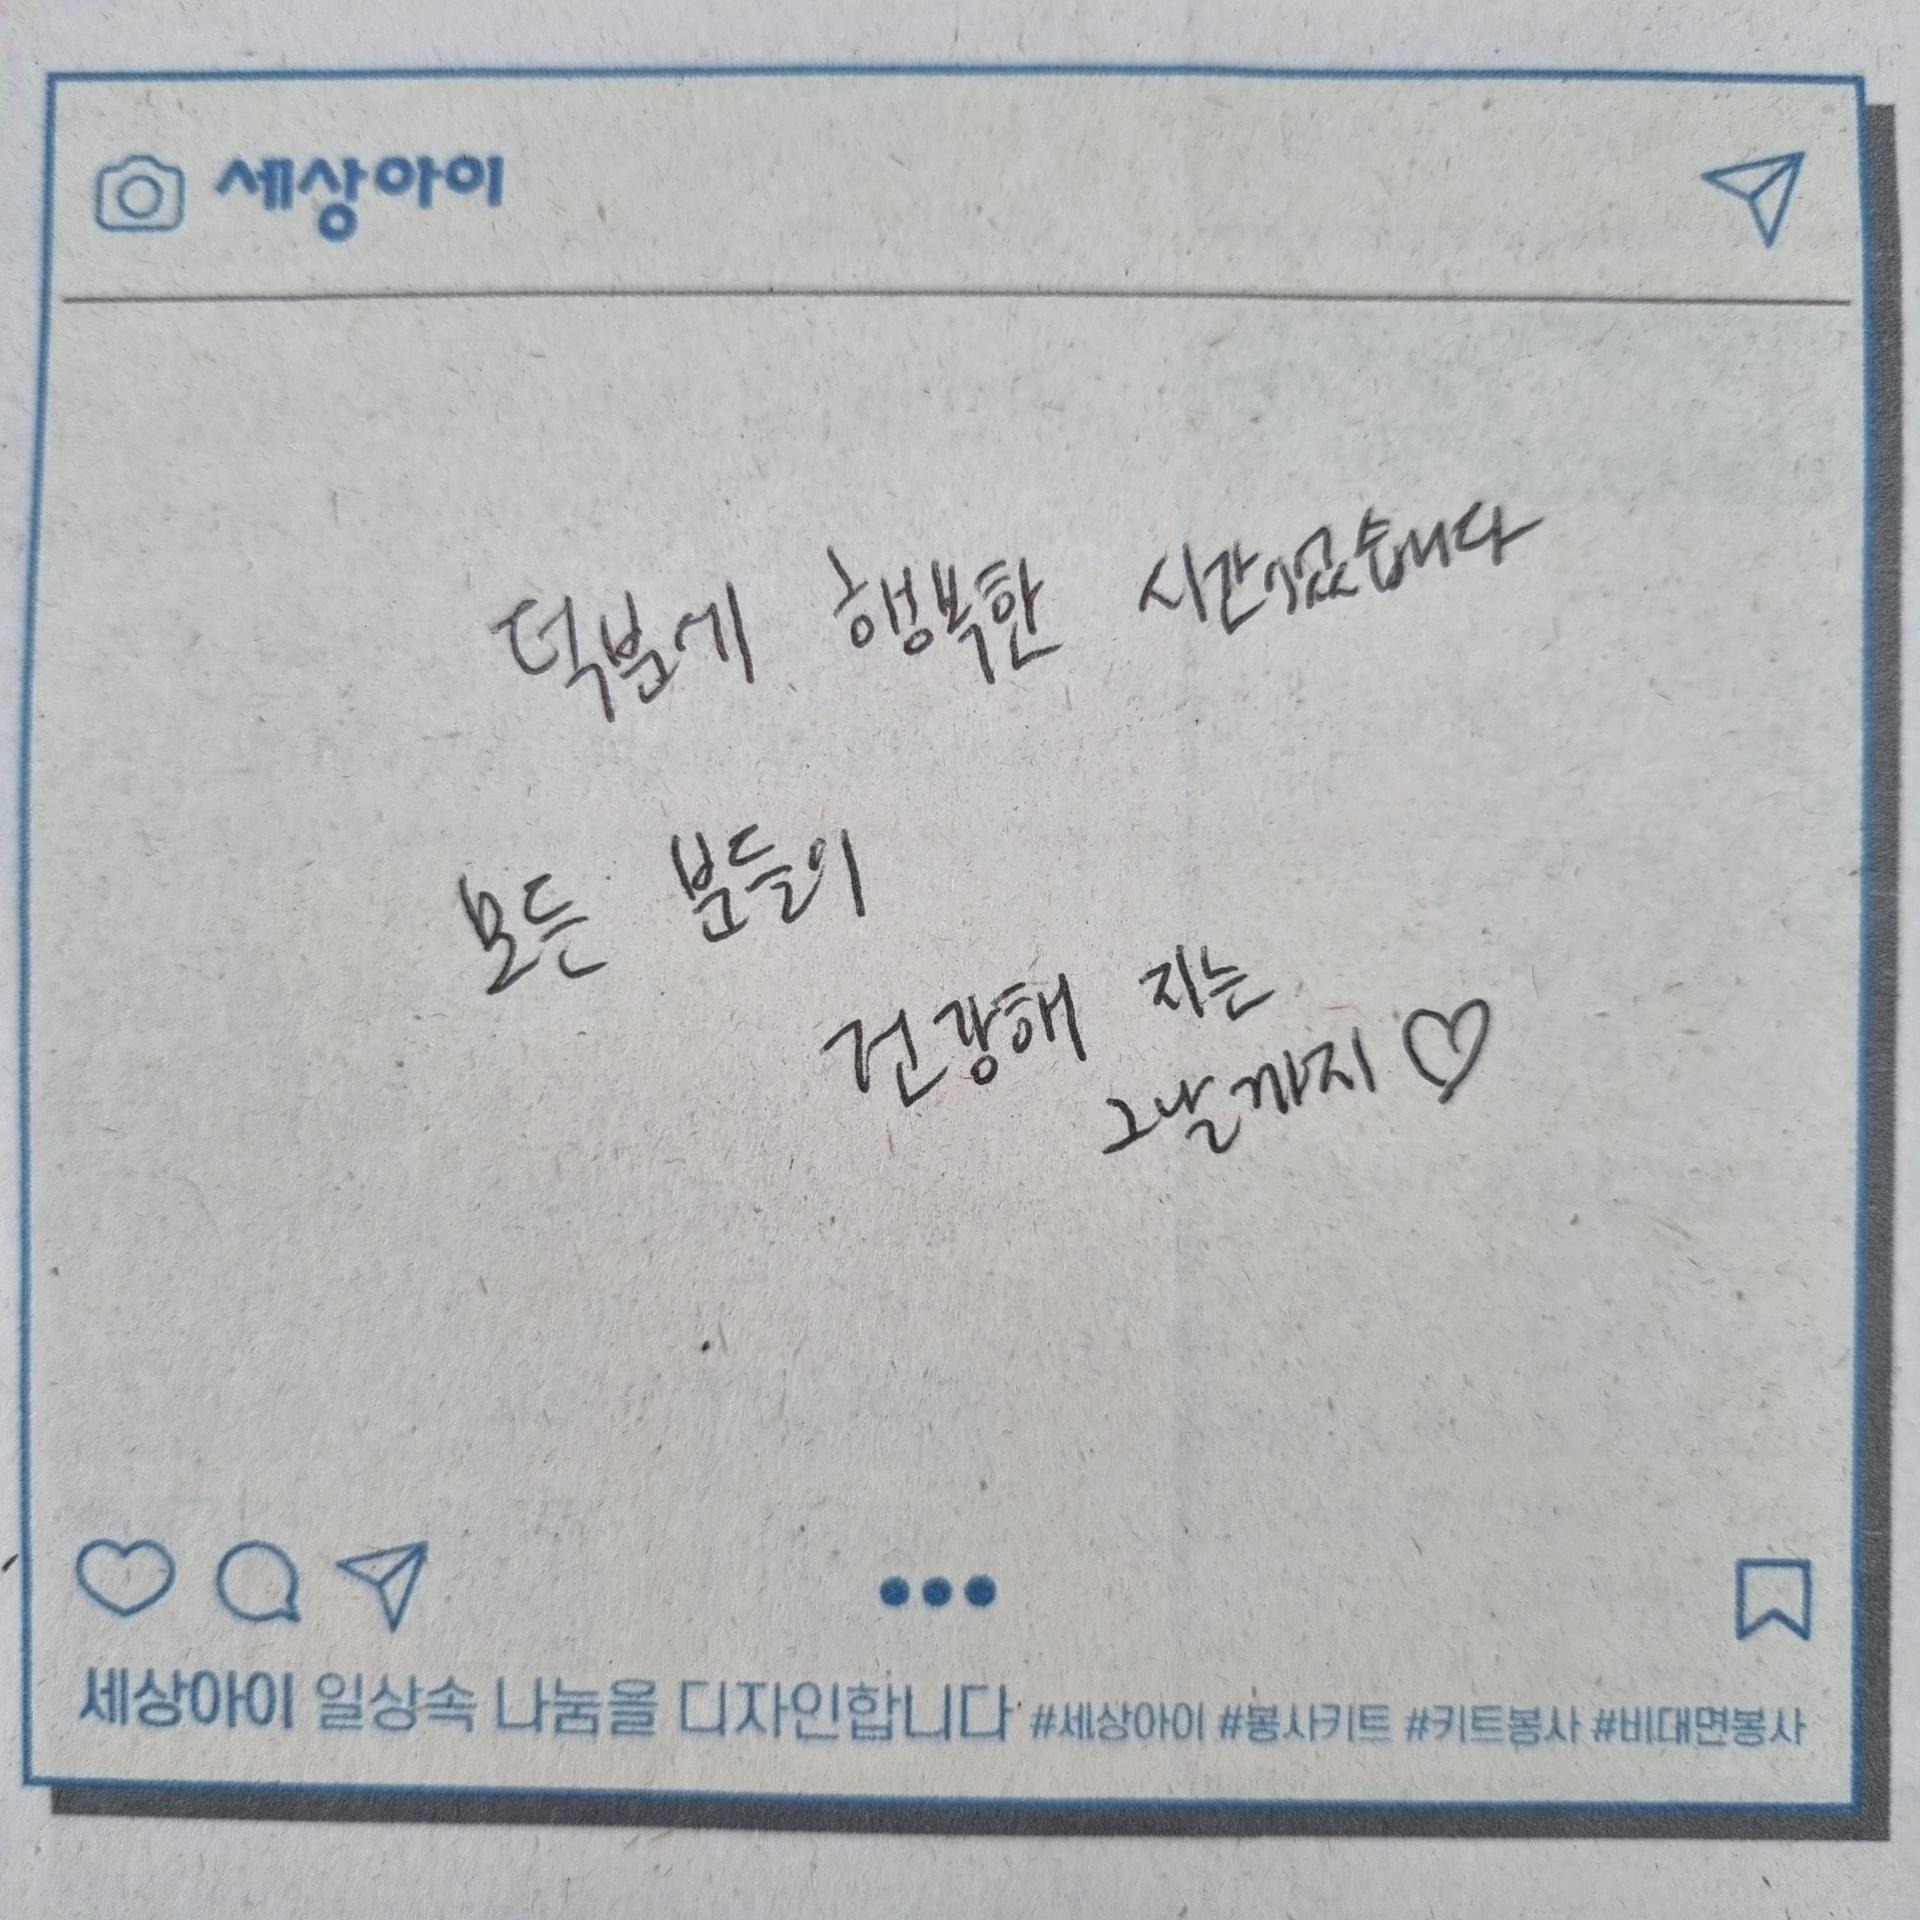 세상아이
덕분에 행복한 시간이었습니다
모든 분들이
건강해 지는
그날까지♡
세상아이 일상속 나눔을 디자인합니다 #세상아이 #봉사키트 #키트봉사 #비대면봉사